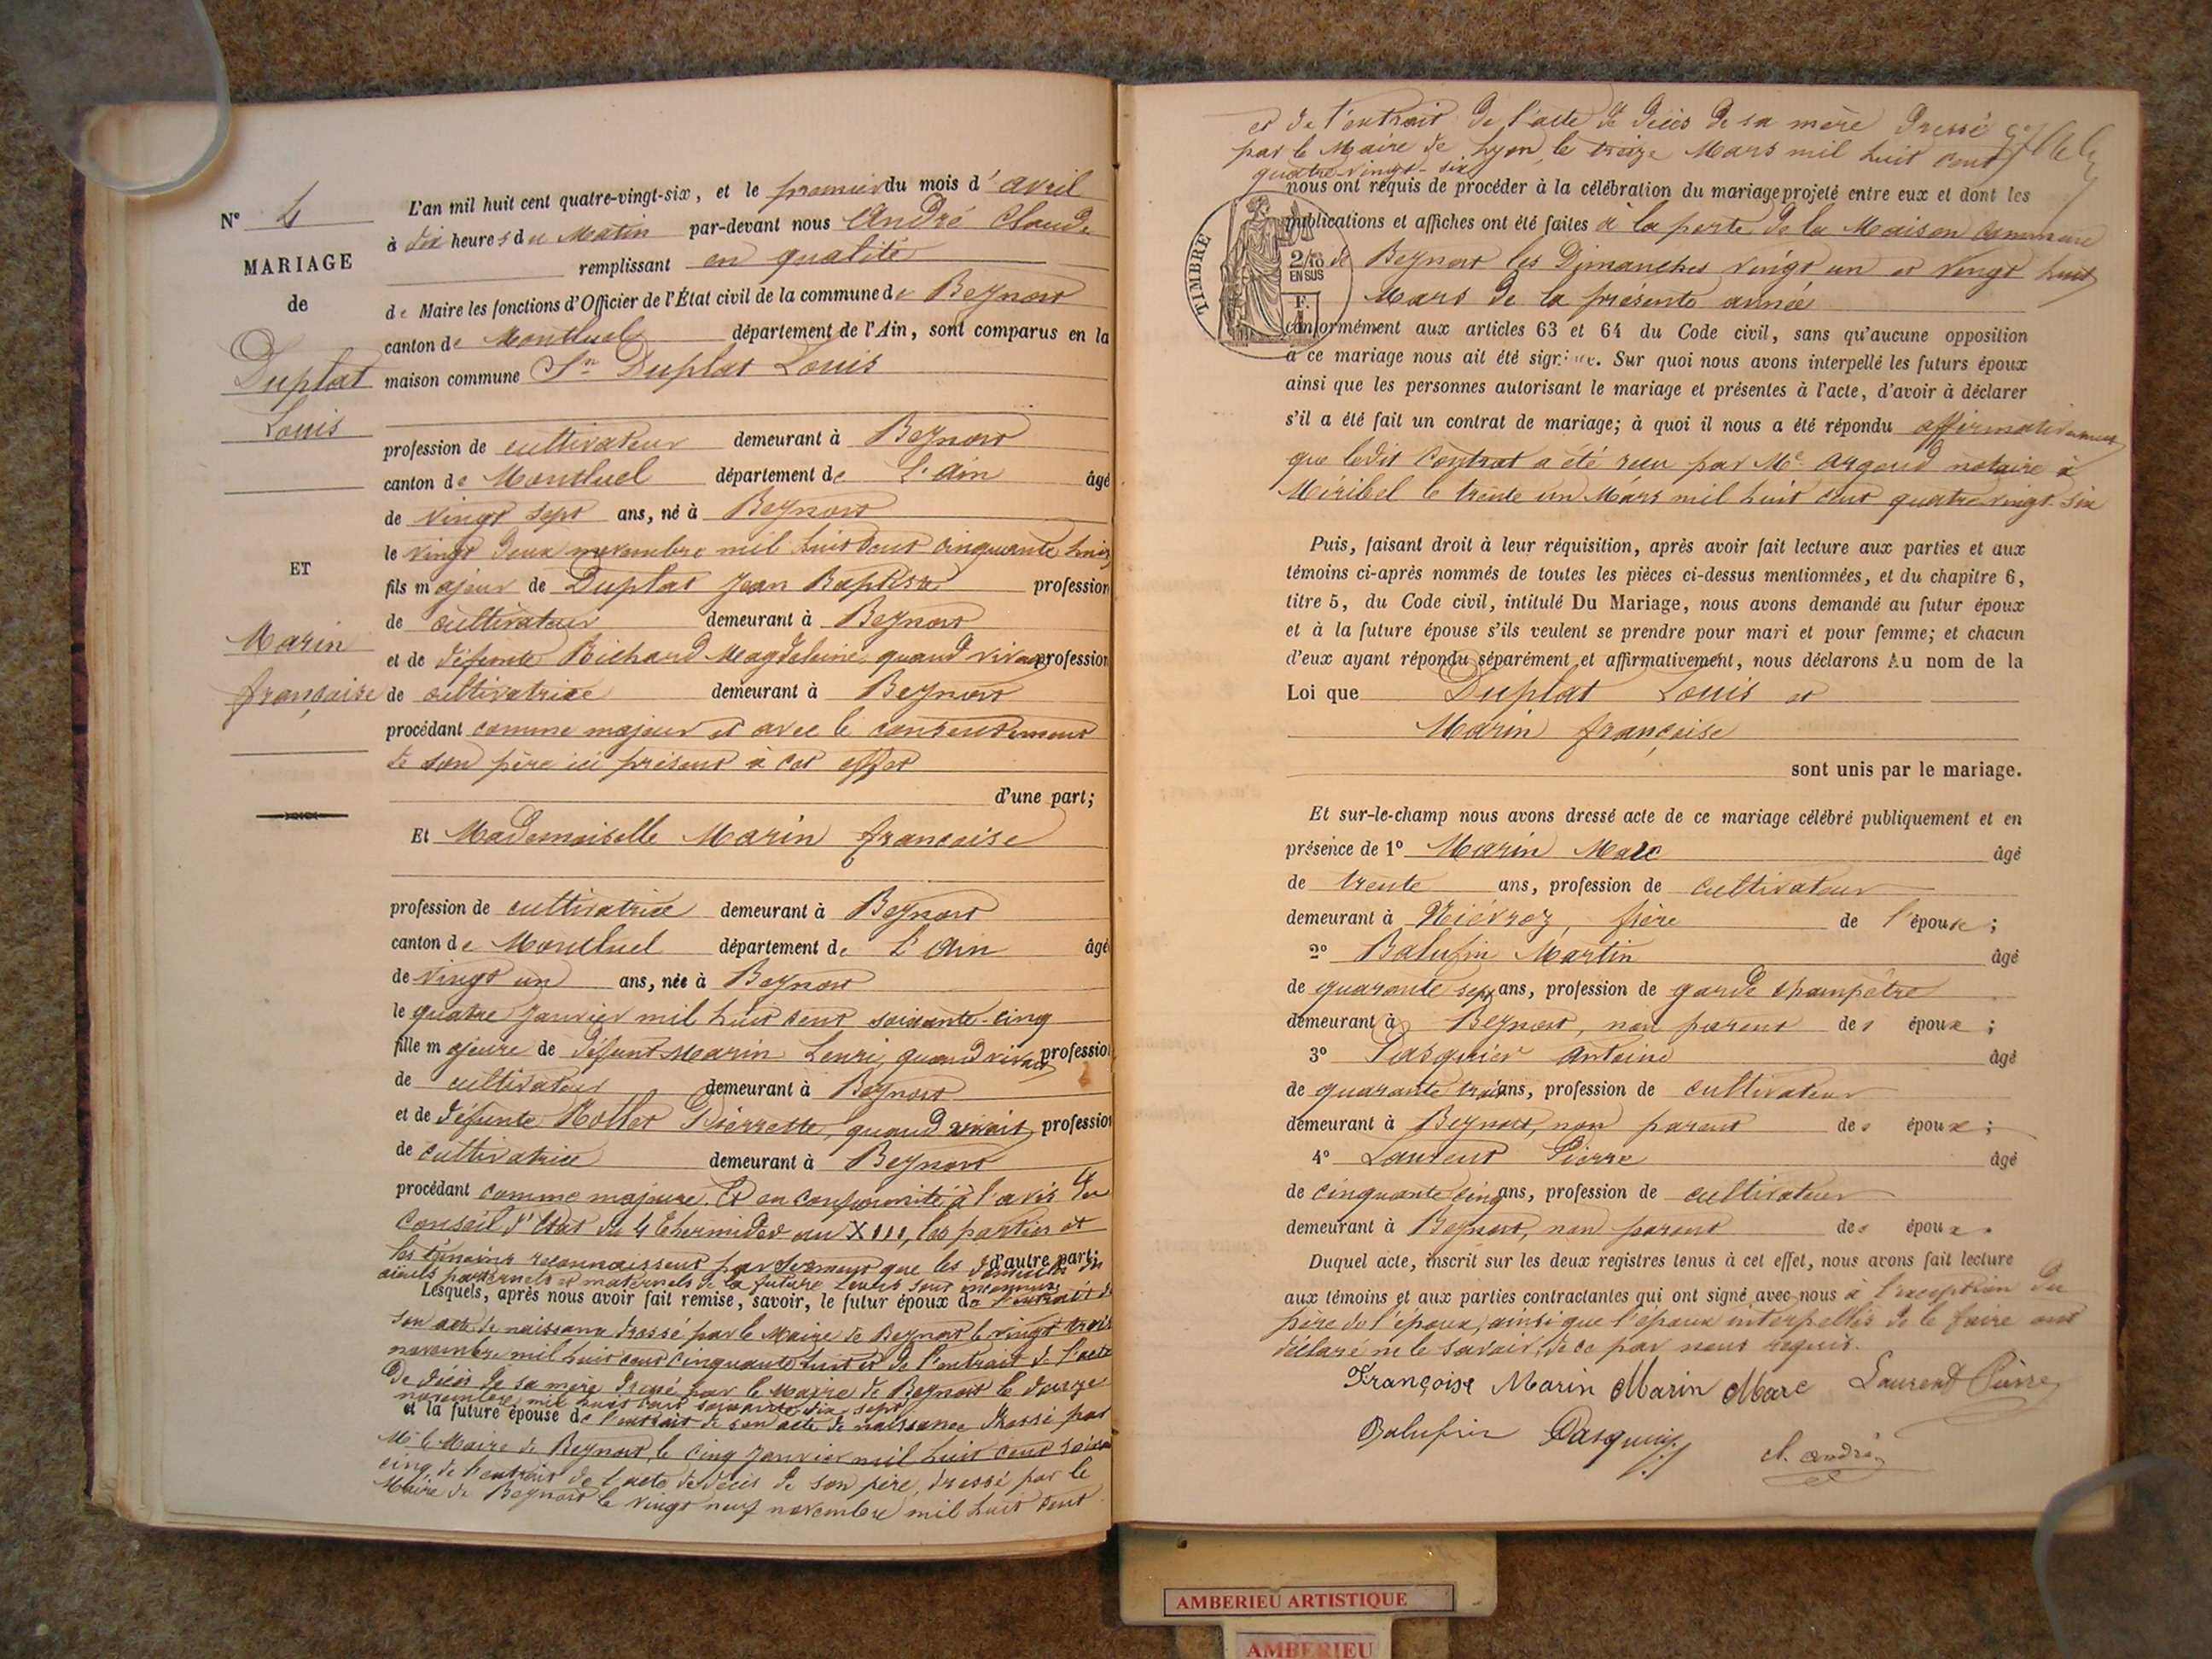 N° 4
MARIAGE
de
Duplat
Louis
ET
Marin
françoise
L'an mil huit cent quatre-vingt-six, et le premier du mois d'avril
à dix heures du Matin par-devant nous André Claude
remplissant en qualité
de Maire les fonctions d'Officier de l'État civil de la commune de Beynost
canton de Montluel département de l'Ain, sont comparus en la
maison commune Sr Duplat Louis
profession de cultivateur demeurant à Beynost
canton de Montluel département de l'Ain âgé
de vingt sept ans, né à Beynost
le vingt deux novembre mil huit cent cinquante huit
fils majeur de Duplat Jean Baptiste profession
de cultivateur demeurant à Beynost
et de défunte Richard Magdeleine, quand vivait profession
de cultivatrice demeurant à Beynost
procédant comme majeur et avec le consentement
de son père ici présent à cet effet
d'une part;
Et Mademoiselle Marin françoise
profession de cultivatrice demeurant à Beynost
canton de Montluel département de l'Ain âgé
de vingt un ans, née à Beynost
le quatre Janvier mil huit cent soixante-cinq
fille majeure de défunt Marin Henri, quand vivait profession
de cultivateur demeurant à Beynost
et de défunte Hollet Pierrette, quand vivait profession
de cultivatrice demeurant à Beynost
procédant comme majeure. Et en conformité à l'avis du
Conseil d'Etat du 4 thermidor an XIII, les parties et
les témoins reconnaissent par serment que les
d'autre part;
aïeuls paternels et maternels de la future sont inconnus
Lesquels, après nous avoir fait remise, savoir, le futur époux de l'extrait de
son acte de naissance dressé par le Maire de Beynost le vingt trois
novembre mil huit cent cinquante huit et de l'extrait de l'acte
de décès de sa mère dressé par le Maire de Beynost le douze
novembre mil huit cent soixante dix sept
et la future épouse de l'extrait de son acte de naissance dressé par
Mr le Maire de Beynost, le cinq Janvier mil huit cent soixante
cinq, de l'extrait de l'acte de décès de son père, dressé par le
Maire de Beynost le vingt neuf novembre mil huit cent
et de l'extrait de l'acte de décès de sa mère dressé
par le Maire de Lyon, le treize Mars mil huit cent
quatre-vingt-six
nous ont requis de procéder à la célébration du mariage projeté entre eux et dont les
publications et affiches ont été faites à la porte de la Maison Commune
de Beynost les Dimanches vingt un et vingt huit
Mars de la présente année
TIMBRE
2/10
EN SUS
conformément aux articles 63 et 64 du Code civil, sans qu'aucune opposition
à ce mariage nous ait été signifiée. Sur quoi nous avons interpellé les futurs époux
ainsi que les personnes autorisant le mariage et présentes à l'acte, d'avoir à déclarer
s'il a été fait un contrat de mariage; à quoi il nous a été répondu affirmativement
que ledit Contrat a été reçu par Me Argoud notaire à
Miribel le trente un Mars mil huit cent quatre vingt-six
Puis, faisant droit à leur réquisition, après avoir fait lecture aux parties et aux
témoins ci-après nommés de toutes les pièces ci-dessus mentionnées, et du chapitre 6,
titre 5, du Code civil, intitulé Du Mariage, nous avons demandé au futur époux
et à la future épouse s'ils veulent se prendre pour mari et pour femme; et chacun
d'eux ayant répondu séparément et affirmativement, nous déclarons Au nom de la
Loi que Duplat Louis et
Marin françoise
sont unis par le mariage.
Et sur-le-champ nous avons dressé acte de ce mariage célébré publiquement et en
présence de 1° Marin Marc âgé
de trente ans, profession de cultivateur
demeurant à Niévroz, frère de l'épouse;
2° Balufin Martin âgé
de quarante sept ans, profession de garde champêtre
demeurant à Beynost, non parent des époux;
3° Pasquier Antoine âgé
de quarante trois ans, profession de cultivateur
demeurant à Beynost, non parent des époux;
4° Laurent Pierre âgé
de cinquante cinq ans, profession de cultivateur
demeurant à Beynost, non parent des époux.
Duquel acte, inscrit sur les deux registres tenus à cet effet, nous avons fait lecture
aux témoins et aux parties contractantes qui ont signé avec nous à l'exception du
père de l'époux, ainsi que l'époux interpellés de le faire ont
déclaré ne le savoir, de ce par nous requis.
Françoise Marin Marin Marc Laurent Pierre
Balufin Pasquier Cl. André
AMBERIEU ARTISTIQUE
AMBERIEU